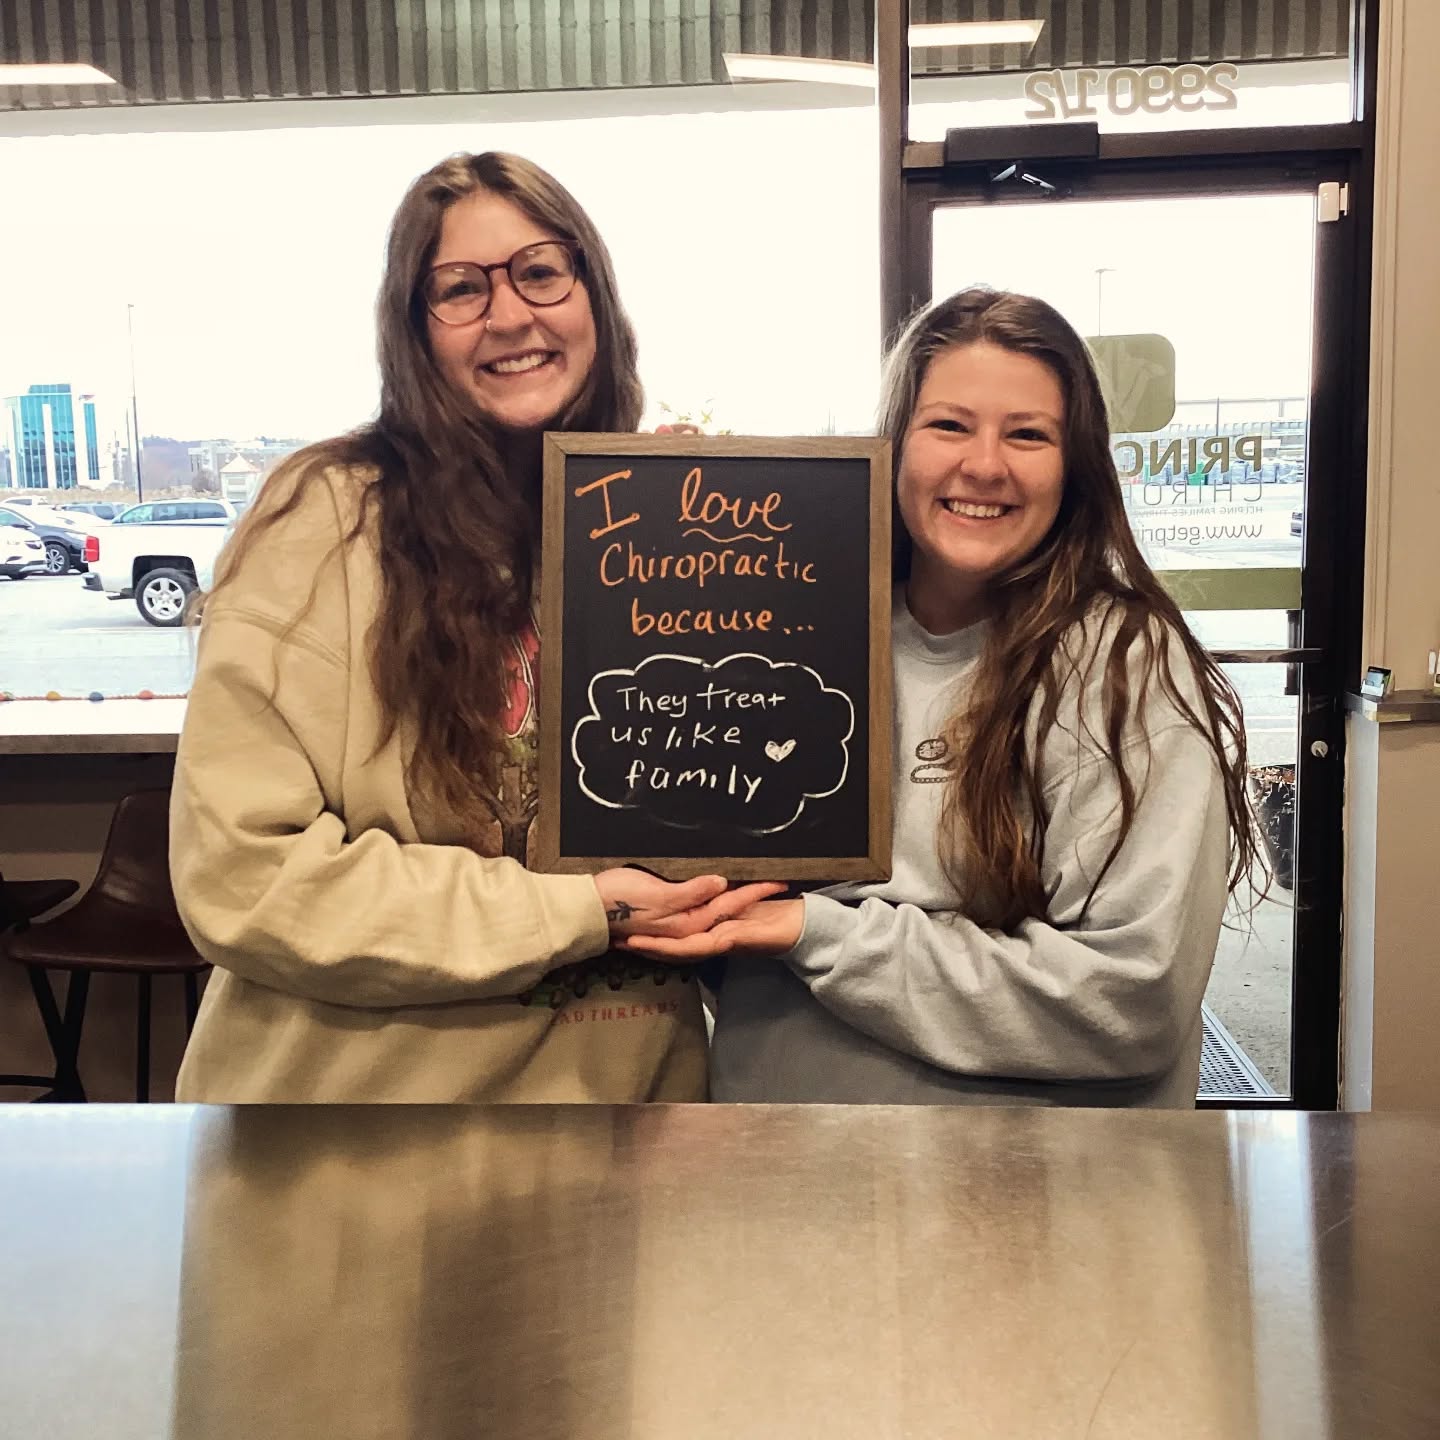 2990 1/2
I love
Chiropractic
because...
They treat
us like
family
PRINC
CHIRO
HELPING FAMILIES THRIVE
www.getprin